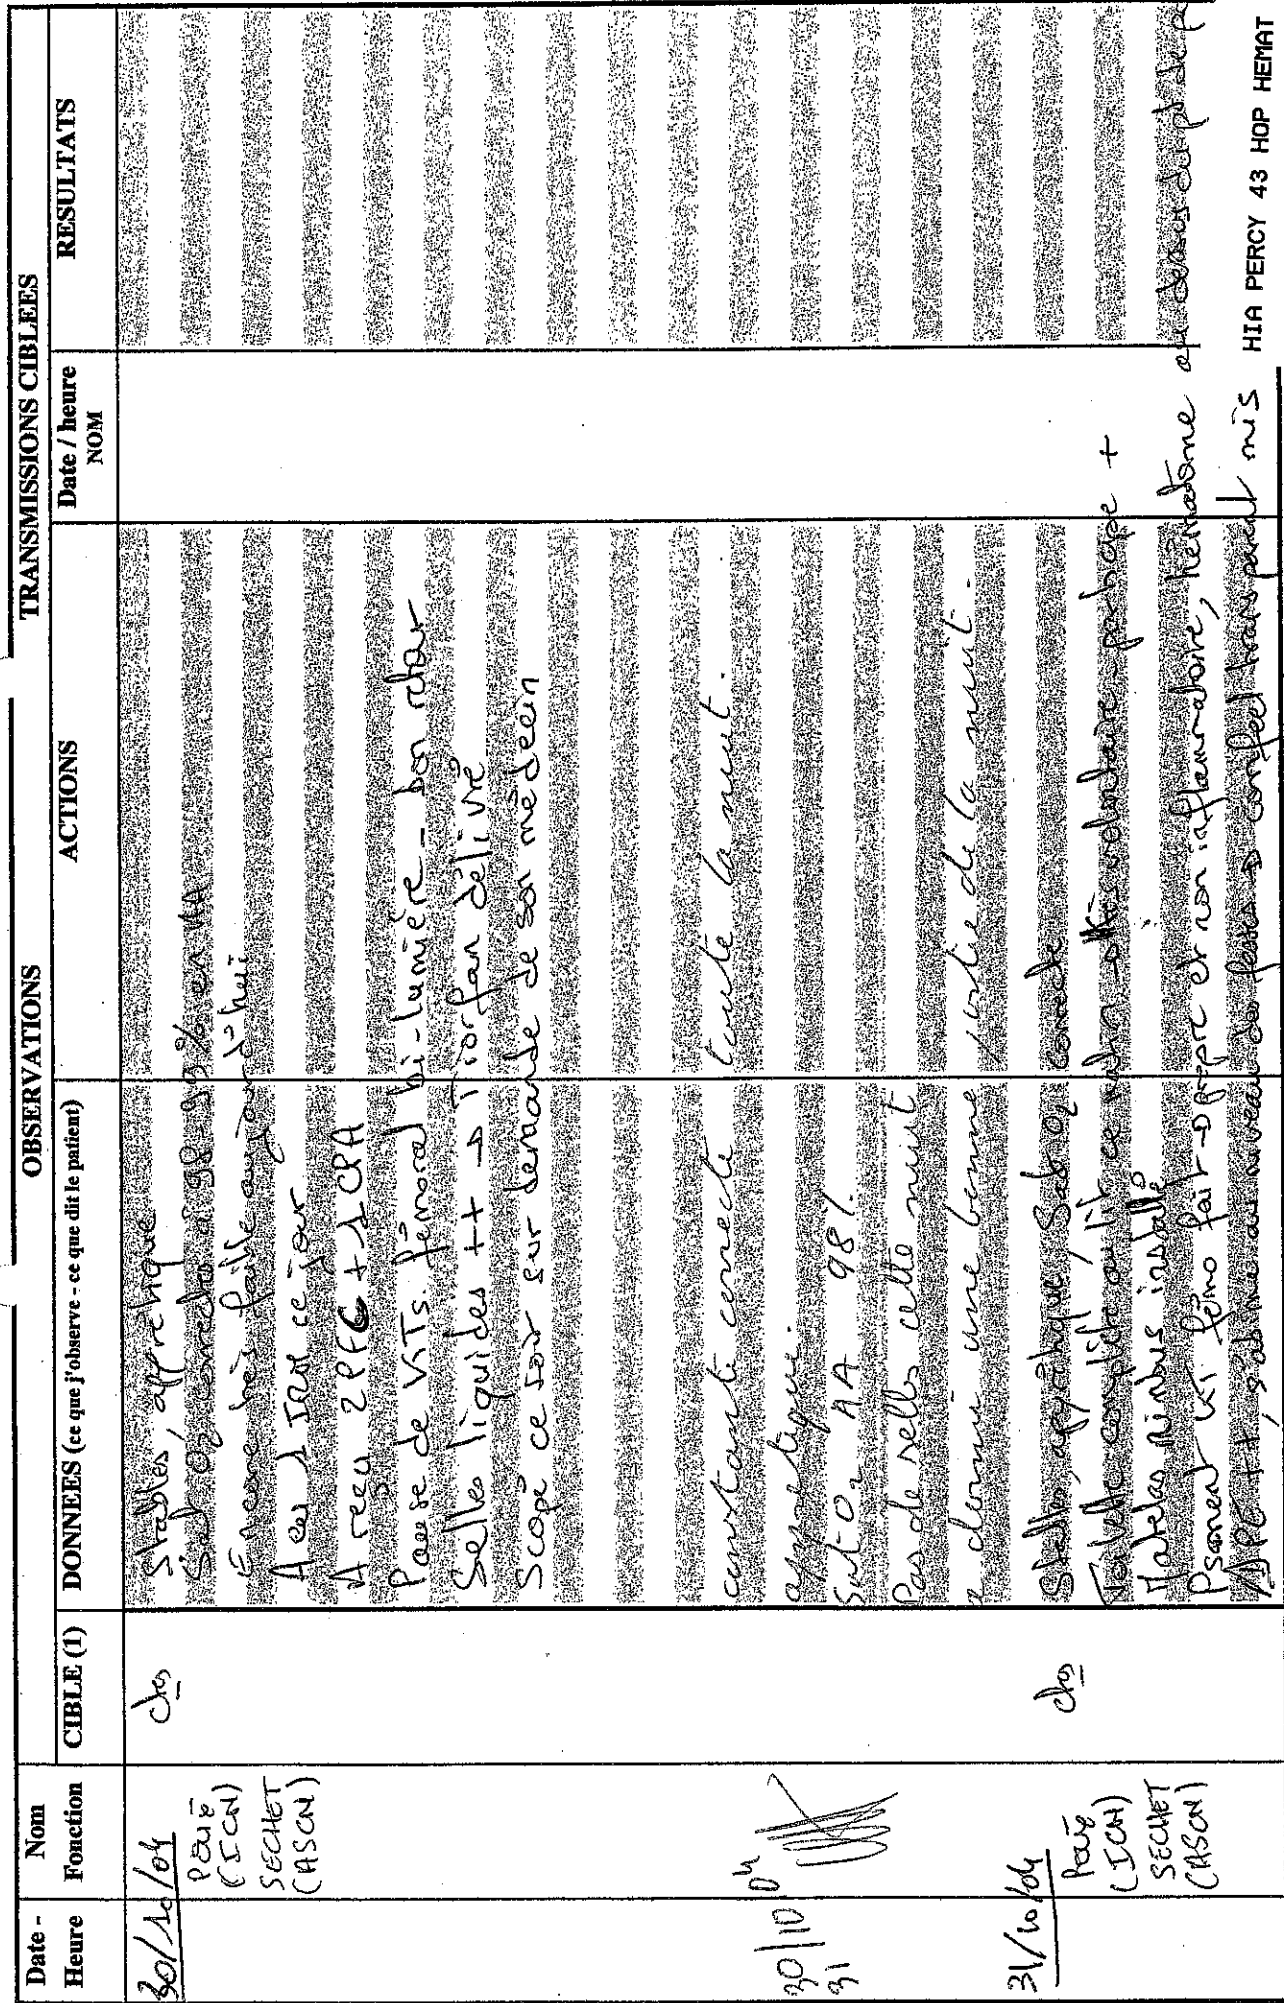 OBSERVATIONS
TRANSMISSIONS CIBLEES
Date - Heure
Nom Fonction
CIBLE (1)
DONNEES (ce que j'observe - ce que dit le patient)
ACTIONS
Date / heure NOM
RESULTATS
30/10/04
(ICN)
SECHET
(ASCN)
ctes
Stables, apyrétique
Sat O2 correcte à 98 99% en AA
Encore très faible aujourd'hui
A eu 1 IRM ce jour
A reçu 2PFC + 1 CPA
Pause de VVTs. fémoral bi-lumière - bon retour
Selles liquides ++ → Tiorfan délivré
Scopé ce soir sur demande de son médecin
30/10 04
31
constante correcte toute la nuit.
apyrétique.
Sat O2 AA 98%.
Pas de selles cette nuit
a dormi une bonne partie de la nuit.
31/10/04
(ICN)
SECHET
(ASCN)
ctes
Stables, apyrétique / Sat O2 correcte
Toilette complète au lit ce matin
Matelas Nimbus installé
Psement KT fémo fait → propre et non inflammatoire, hématome au dessus du pt de
au niveau des fesses → comfeel transparent mis
HIA PERCY 43 HOP HEMAT